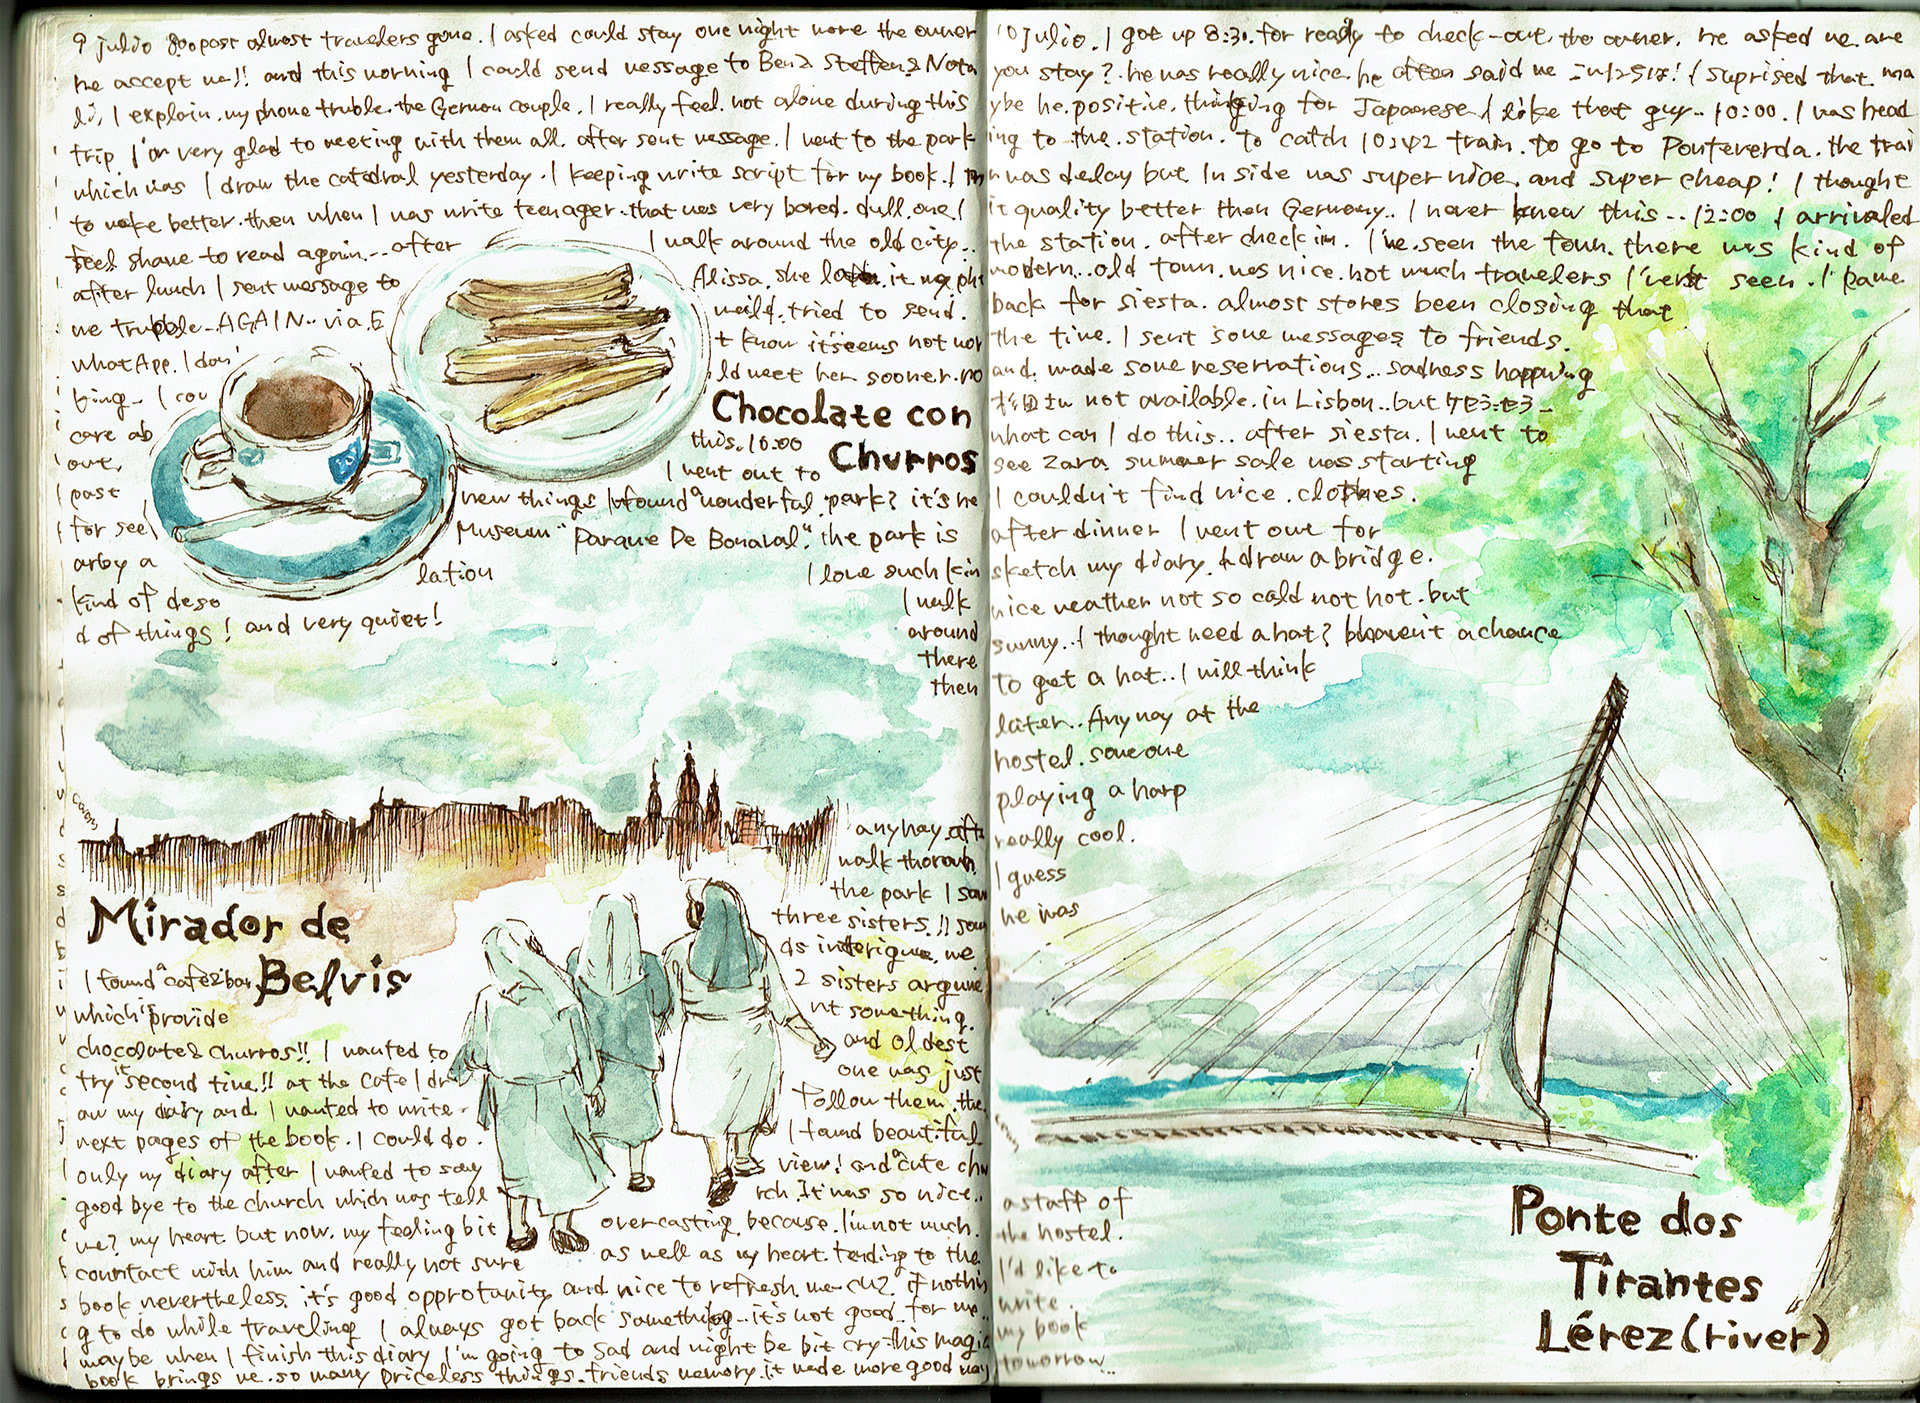 9 julio 8:00 past almost travelers gone. I asked could stay one night more the owner
he accept me!! and this morning I could send message to Ben & Steffen & Nata
li, I explain my phone truble. the German couple. I really feel not alone during this
trip. I'm very glad to meeting with them all. after sent message. I went to the park
which was I draw the catedral yesterday. I keeping write script for my book. I
to make better. then when I was write teenager. that was very bored. dull. one I
feel shame to read again... after
I walk around the old city..
after lunch I sent message to
Alissa. she it my ph
me trubble - AGAIN.. via E
maild. tried to send.
What App. I don'
t know it seems not wor
king.. I cou
ld meet her sooner. no
Chocolate con
Churros
care ab
this. 10:00
out,
I went out to
past
new things I found a wonderful park? it's ne
for see
Museum "Parque De Bonaval". the park is
arby a
lation
I love such kin
kind of deso
d of things! and very quiet!
I walk
around
there
then
anyhay. aft
walk thorouh
the park I saw
three sisters.!! 
2 sisters argume
nt something.
and oldest
one was just
Follow them. the
I found beautiful
view! and a cute chu
rch. It was so nice..
Mirador de
Belvis
I found a cafe&bar
which provide
chocolate & churros!! I wanted to
try it second time!! at the cafe I dr
aw my diary and I wanted to write
next pages of the book. I could do
only my diary after I wanted to say
good bye to the church which was tell
me? my heart but now. my feeling bit
overcasting. because. I'm not much.
countact with him and really not sure
as well as my heart. tending to the
book nevertheless. it's good opprotunity and nice to refresh me if nothin
g to do while traveling I always got back something.. it's not good for me..
maybe when I finish this diary I'm going to sad and might be bit cry. this magic
book brings me. so many priceless things. friends memory. it made more good way
10 Julio. I got up 8:30. for ready to check-out. the owner. he asked me are
you stay? he was really nice. he said me いってらっしゃい! I suprised that ma
ybe he. positive. thinging for Japanese I like that guy.. 10:00. I was head
ing to the station. to catch 10:42 train. to go to Ponteverda. the trai
n was delay but In side was super nice. and super cheap! I thought
it quality better then Germany.. I never knew this... 12:00 I arrivaled
the station. after check in. I've seen the town. there was kind of
modern.. old town. was nice. not much travelers I've seen. I came
back for siesta. almost stores been closing that
the time. I sent some messages to friends.
and made some reservations.. sadness happning
not available. in Lisbon.. but ケセラセラ-
what can I do this.. after siesta. I went to
see Zara. summer sale was starting
I couldn't find nice. clothes.
after dinner I went out for
sketch my diary. & draw a bridge.
nice weather not so cold not hot. but
sunny.. I thought need a hat? haven't a chance
to get a hat.. I will think
later.. Any way at the
hostel. someone
playing a harp
really cool.
I guess
he was
a staff of
the hostel.
I'd like to
write
my book
tomorrow...
Ponte dos
Tirantes
Lérez (river)